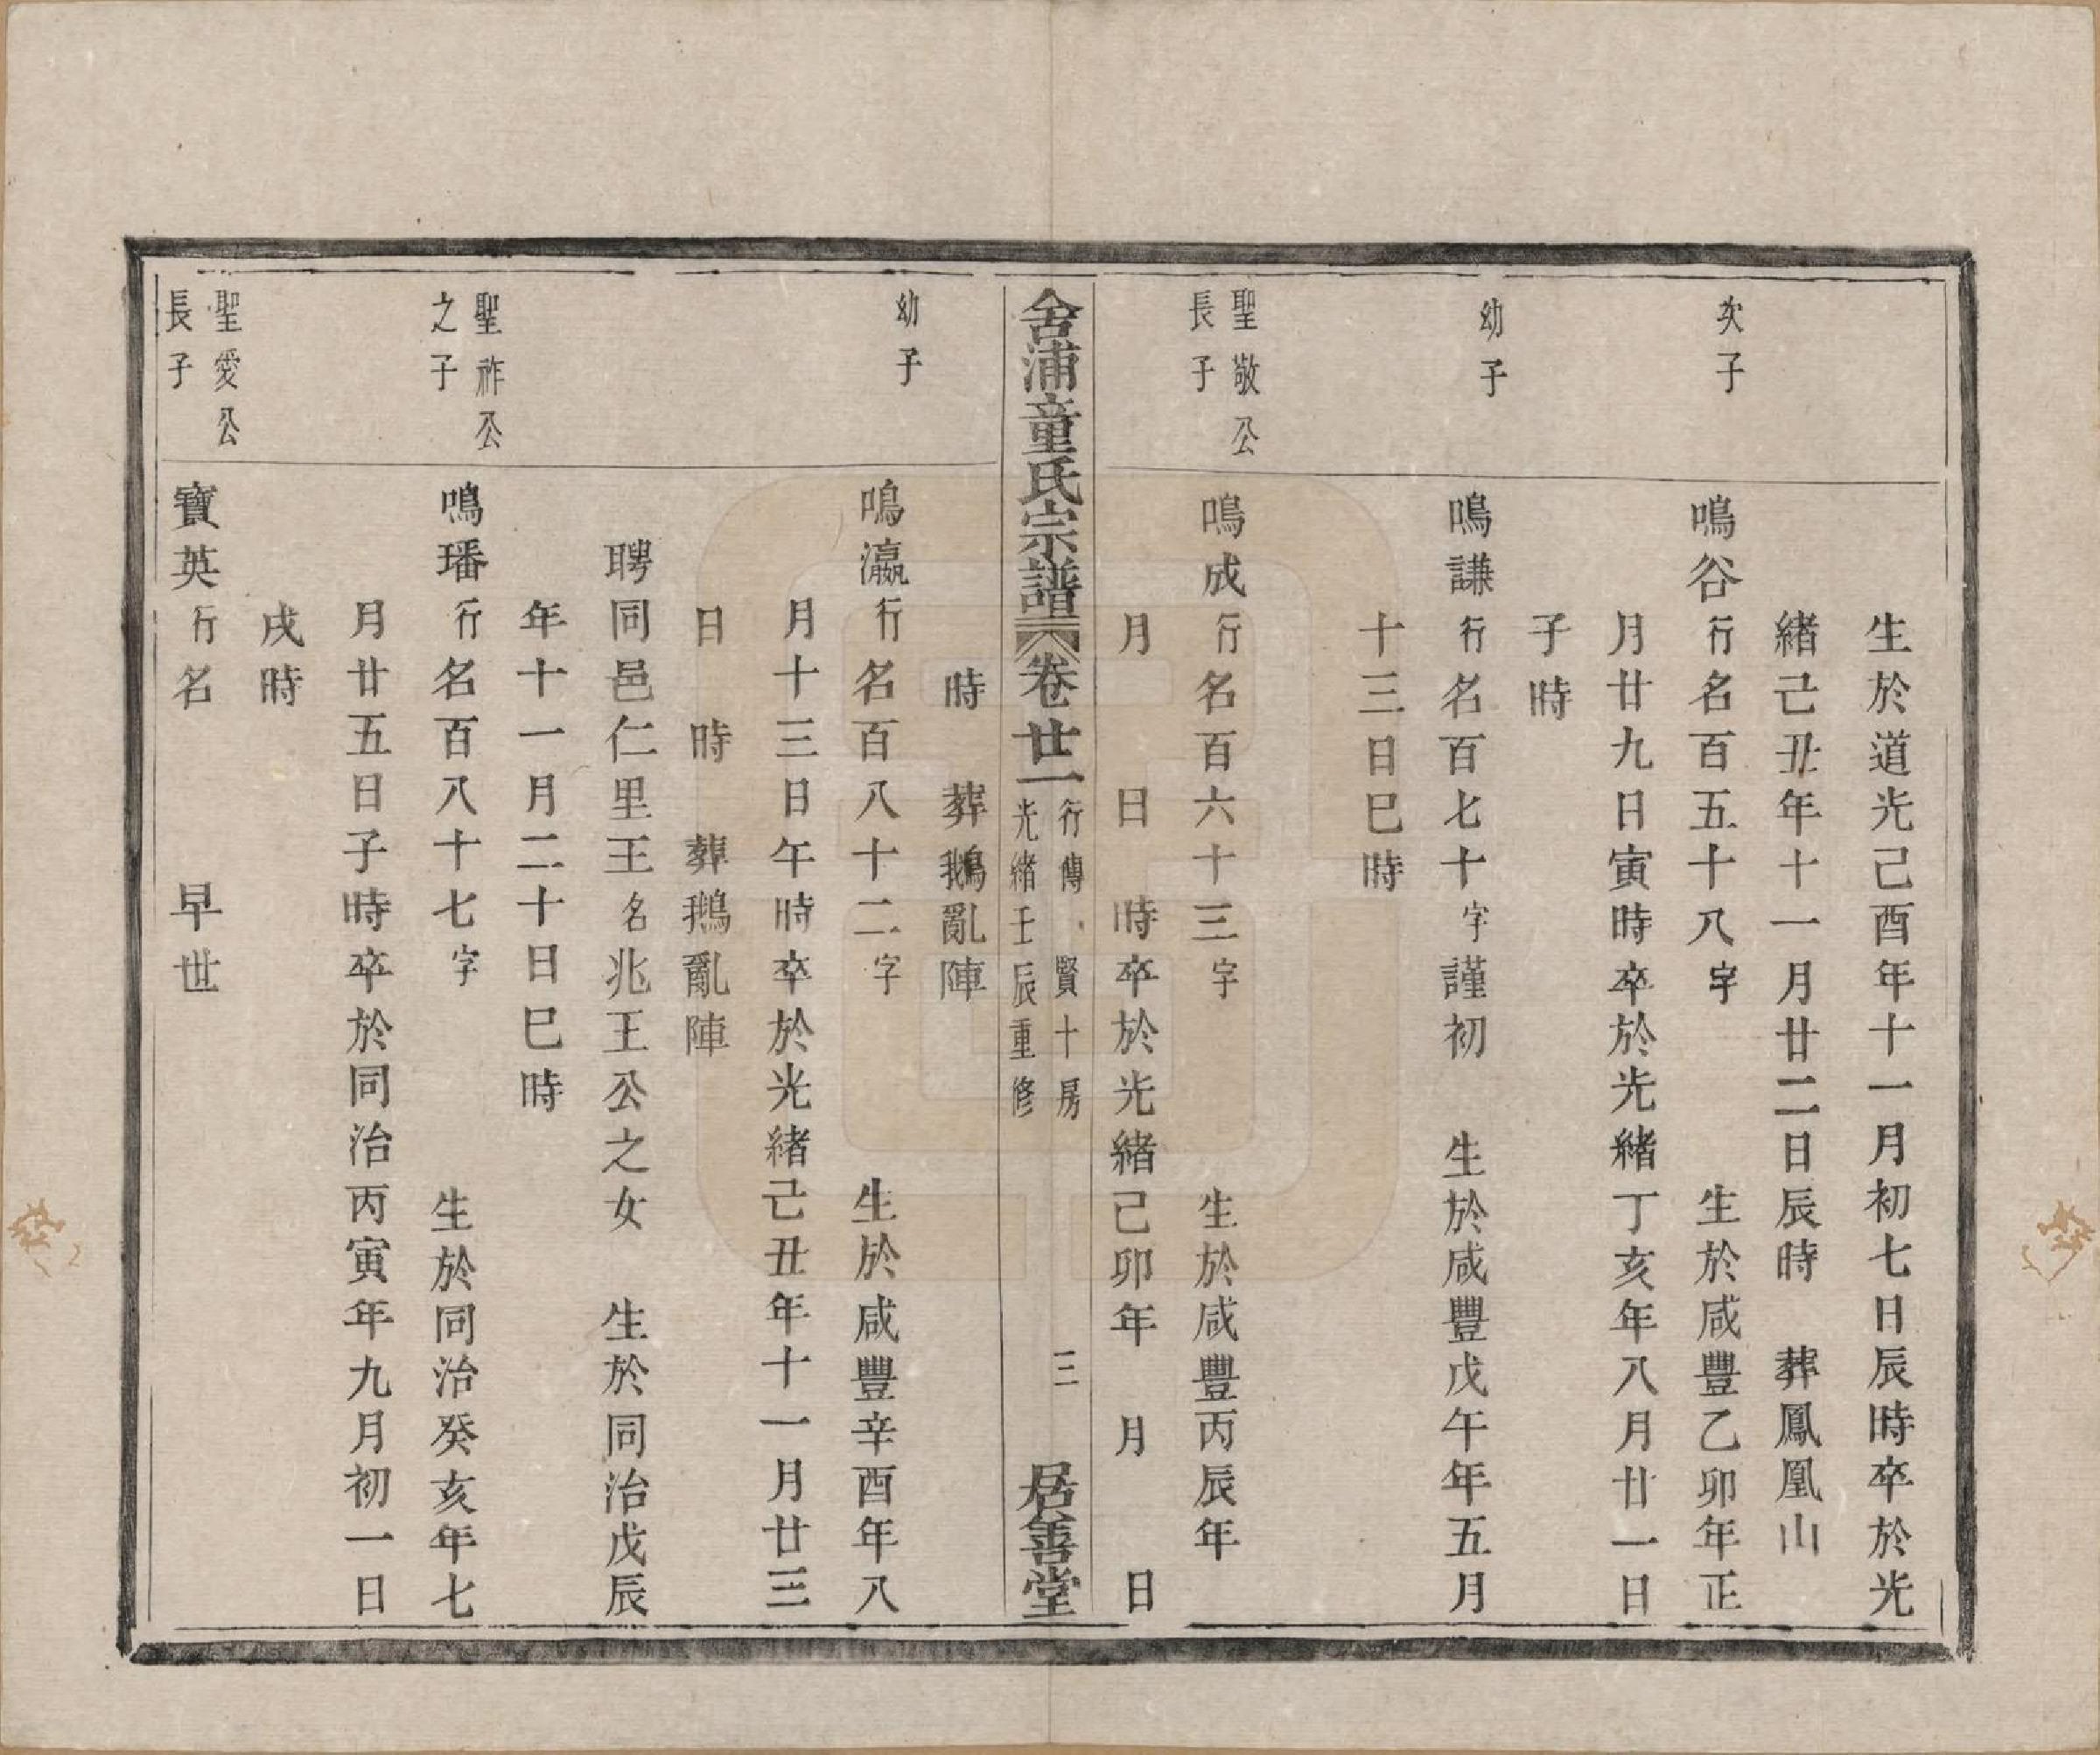 生於道光己酉年十一月初七日辰時卒於光
緒己丑年十一月廿二日辰時　葬鳳凰山
次子
鳴谷行名百五十八字　生於咸豐乙卯年正
月廿九日寅時卒於光緒丁亥年八月廿一日
子時
幼子
鳴謙行名百七十字謹初　生於咸豐戊午年五月
十三日巳時
聖敬公
長子
鳴成行名百六十三字　生於咸豐丙辰年
月　日　時卒於光緒己卯年　月　日
舍浦童氏宗譜　卷廿一　行傳　賢十房
光緒壬辰重修　三　居善堂
時　葬鵝亂陣
幼子
鳴瀛行名百八十二字　生於咸豐辛酉年八
月十三日午時卒於光緒己丑年十一月廿三
日　時　葬鵝亂陣
聘同邑仁里王名兆王公之女　生於同治戊辰
年十一月二十日巳時
聖祚公
之子
鳴璠行名百八十七字　生於同治癸亥年七
月廿五日子時卒於同治丙寅年九月初一日
戌時
聖愛公
長子
寶英行名　早世